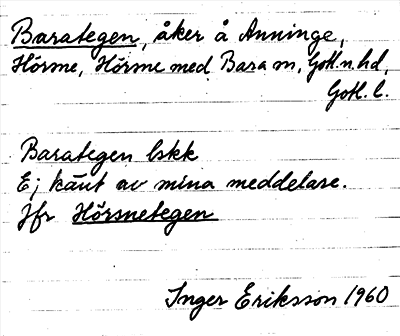 Barategen, åker å Anninge,
Hörsne, Hörsne med Bara sn, Gotl. n. hd,
Gotl. l.
Barategen bskk
Ej känt av mina meddelare.
Jfr Hörsnetegen
Inger Eriksson 1960